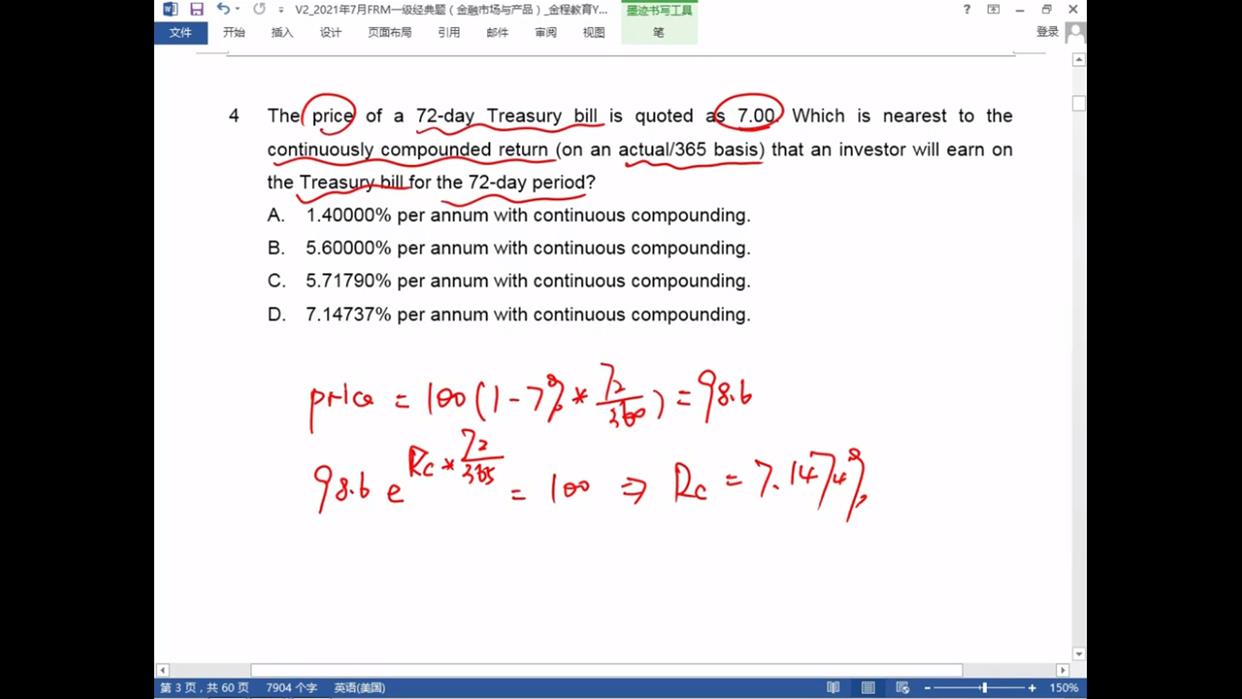 V2_2021年7月FRM一级经典题（金融市场与产品）_金程教育Y...
墨迹书写工具
?
文件
开始
插入
设计
页面布局
引用
邮件
审阅
视图
笔
登录
4 The price of a 72-day Treasury bill is quoted as 7.00. Which is nearest to the
continuously compounded return (on an actual/365 basis) that an investor will earn on
the Treasury bill for the 72-day period?
A. 1.40000% per annum with continuous compounding.
B. 5.60000% per annum with continuous compounding.
C. 5.71790% per annum with continuous compounding.
D. 7.14737% per annum with continuous compounding.
price = 100(1-7%*72/360)=98.6
98.6 e^(Rc*72/365) = 100 ⇒ Rc = 7.1474%
第 3 页，共 60 页 7904 个字 英语(美国)
150%